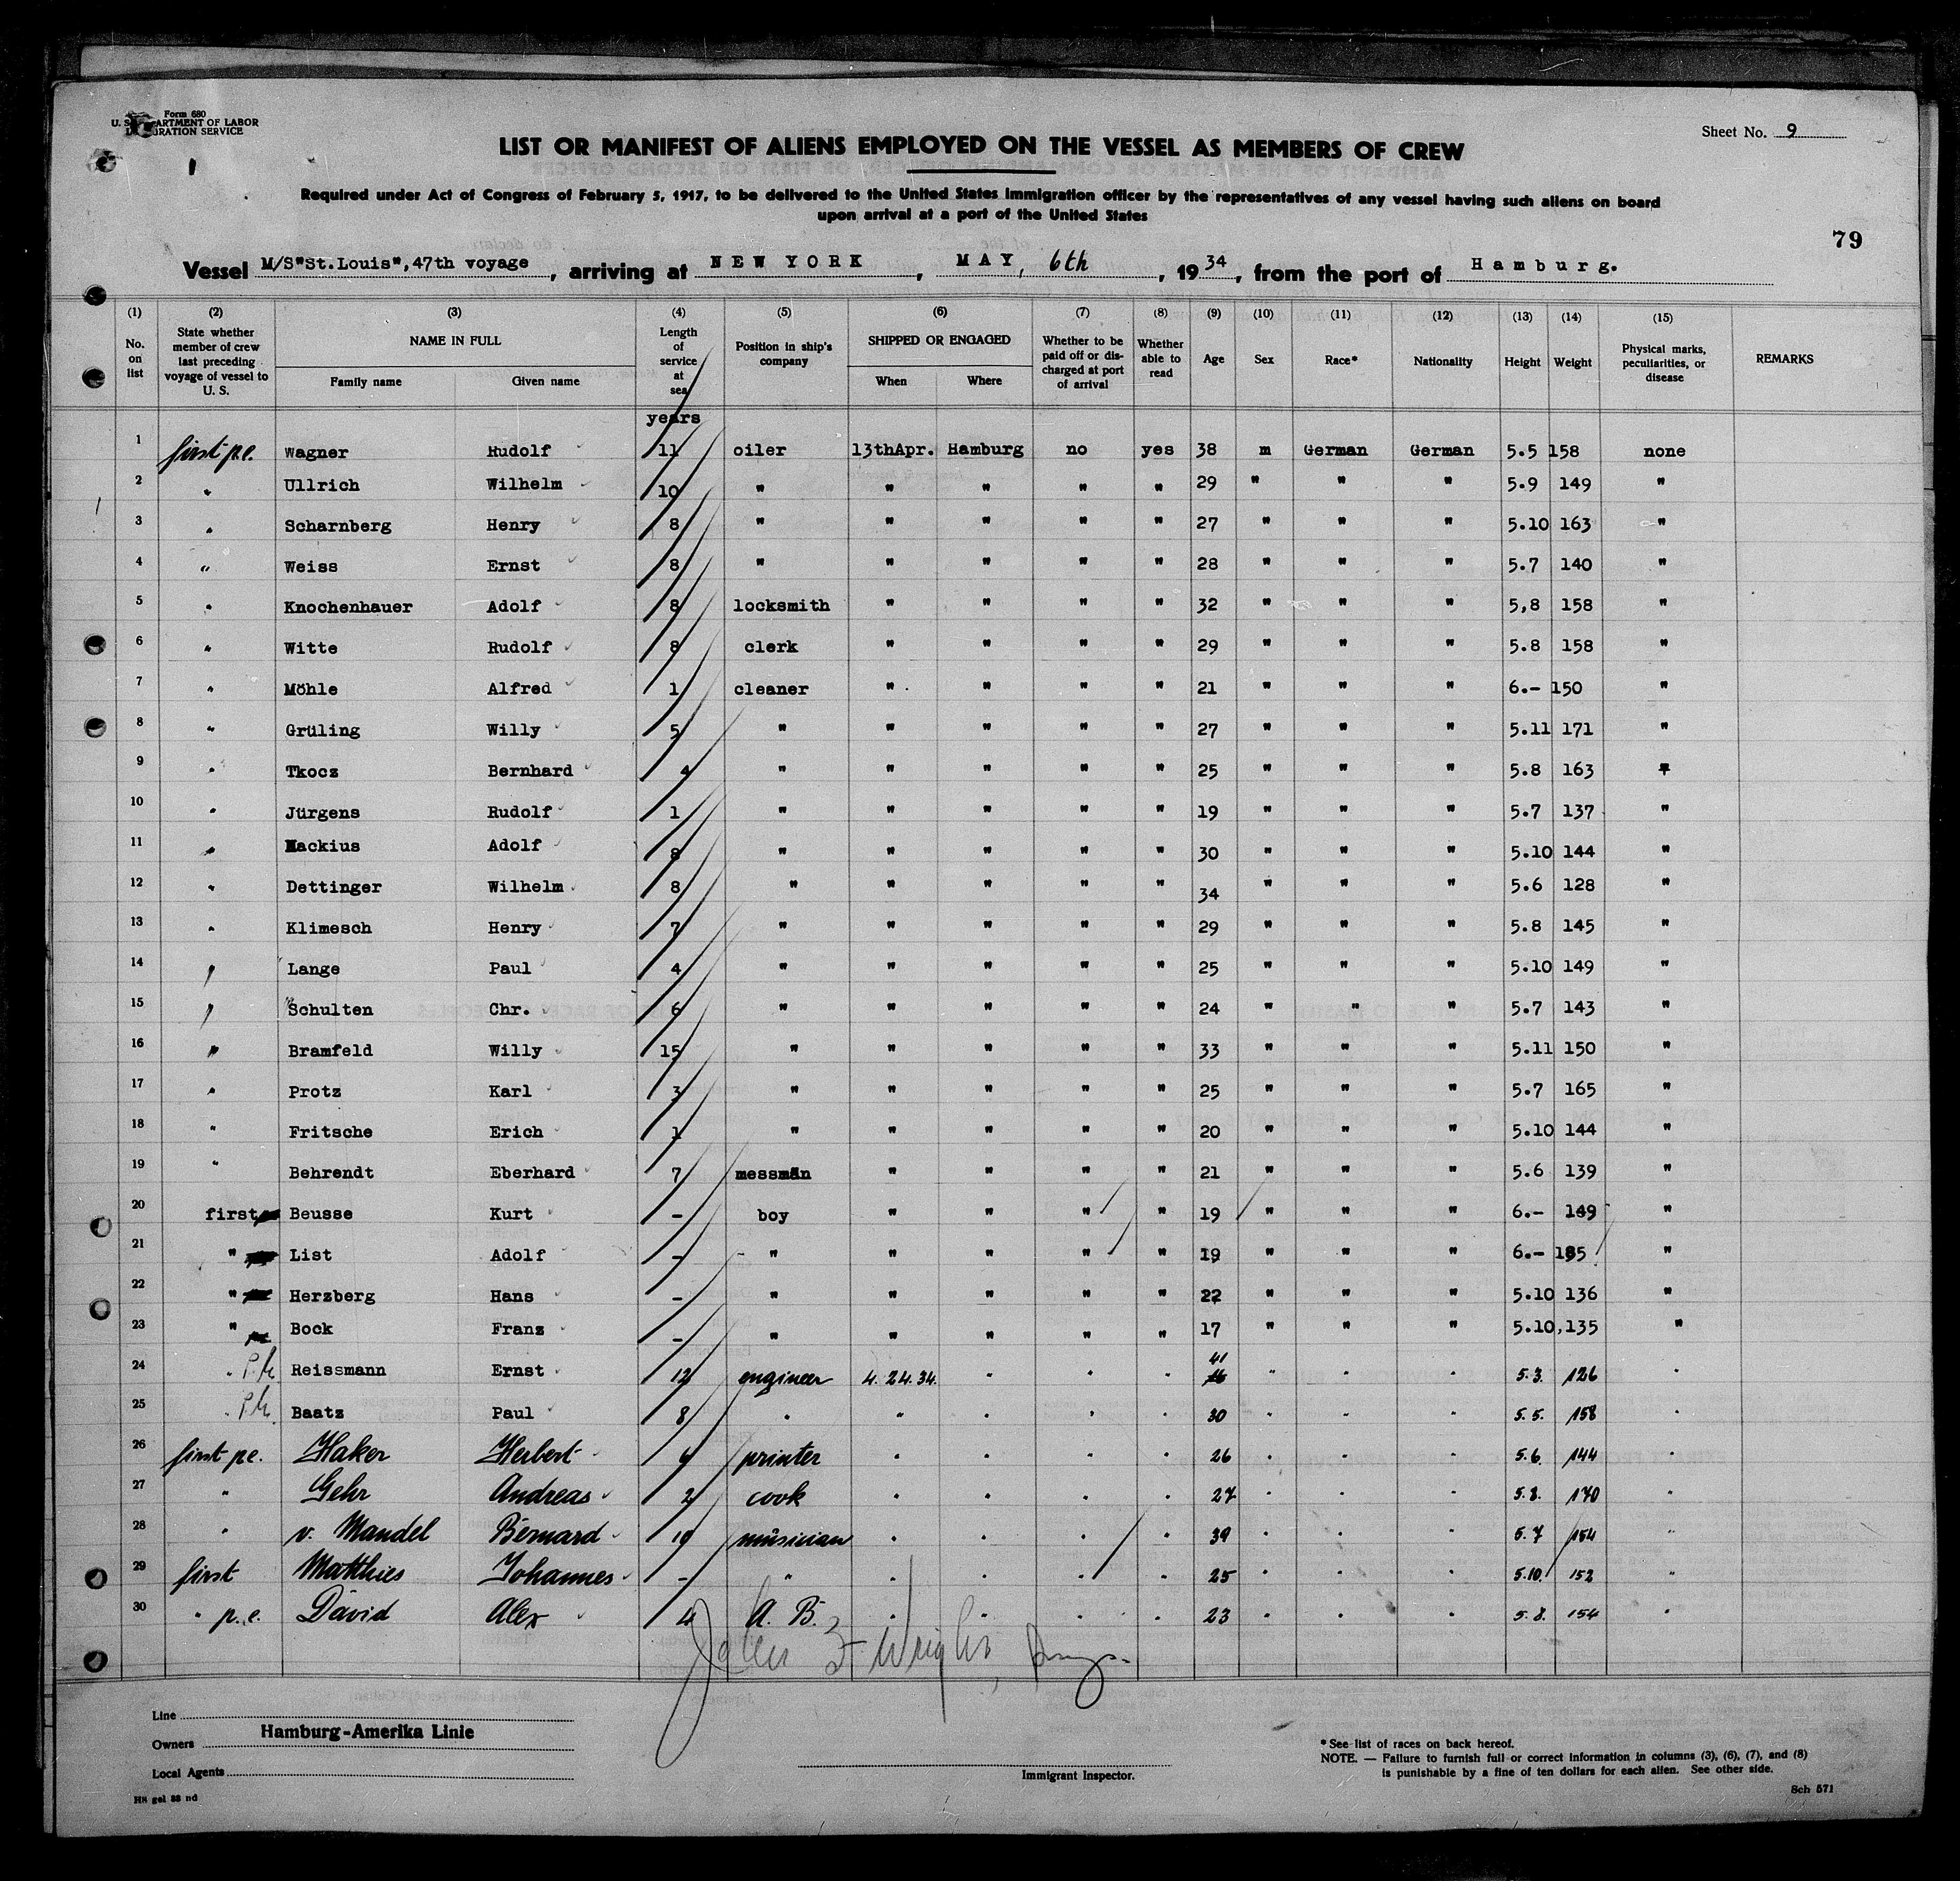 Form 680
U. S. DEPARTMENT OF LABOR
IMMIGRATION SERVICE
Sheet No. 9
LIST OR MANIFEST OF ALIENS EMPLOYED ON THE VESSEL AS MEMBERS OF CREW
Required under Act of Congress of February 5, 1917, to be delivered to the United States Immigration officer by the representatives of any vessel having such aliens on board
upon arrival at a port of the United States
79
Vessel M/S"St.Louis",47th voyage, arriving at NEW YORK, MAY, 6th, 1934, from the port of Hamburg.
(1) (2) (3) (4) (5) (6) (7) (8) (9) (10) (11) (12) (13) (14) (15)
No. on list State whether member of crew last preceding voyage of vessel to U. S. NAME IN FULL Family name Given name Length of service at sea Position in ship's company SHIPPED OR ENGAGED When Where Whether to be paid off or discharged at port of arrival Whether able to read Age Sex Race* Nationality Height Weight Physical marks, peculiarities, or disease REMARKS
years
1 first p.e. Wagner Rudolf 11 oiler 13thApr. Hamburg no yes 38 m German German 5.5 158 none
2 " Ullrich Wilhelm 10 " " " " " 29 " " " 5.9 149 "
3 " Scharnberg Henry 8 " " " " " 27 " " " 5.10 163 "
4 " Weiss Ernst 8 " " " " " 28 " " " 5.7 140 "
5 " Knochenhauer Adolf 8 locksmith " " " " 32 " " " 5,8 158 "
6 " Witte Rudolf 8 clerk " " " " 29 " " " 5.8 158 "
7 " Möhle Alfred 1 cleaner " " " " 21 " " " 6.- 150 "
8 " Grüling Willy 5 " " " " " 27 " " " 5.11 171 "
9 " Tkocz Bernhard 4 " " " " " 25 " " " 5.8 163 "
10 " Jürgens Rudolf 1 " " " " " 19 " " " 5.7 137 "
11 " Mackius Adolf 8 " " " " " 30 " " " 5.10 144 "
12 " Dettinger Wilhelm 8 " " " " " 34 " " " 5.6 128 "
13 " Klimesch Henry 7 " " " " " 29 " " " 5.8 145 "
14 " Lange Paul 4 " " " " " 25 " " " 5.10 149 "
15 " Schulten Chr. 6 " " " " " 24 " " " 5.7 143 "
16 " Bramfeld Willy 15 " " " " " 33 " " " 5.11 150 "
17 " Protz Karl 3 " " " " " 25 " " " 5.7 165 "
18 " Fritsche Erich 1 " " " " " 20 " " " 5.10 144 "
19 " Behrendt Eberhard 7 messman " " " " 21 " " " 5.6 139 "
20 first Beusse Kurt - boy " " " " 19 " " " 6.- 149 "
21 " List Adolf - " " " " " 19 " " " 6.- "
22 " Herzberg Hans - " " " " " 22 " " " 5.10 136 "
23 " Bock Franz - " " " " " 17 " " " 5.10,135 "
24 " Reissmann Ernst 12 engineer 4.24.34. " " " 41 " " " 5.3. 126 "
25 " Baatz Paul 8 " " " " " 30 " " " 5.5. 158 "
26 first p.e. Haker Herbert printer " " " " 26 " " " 5.6. 144 "
27 " Gehr Andreas 2 cook " " " " 27 " " " 5.8. 170 "
28 " v. Mandel Bernard musician " " " " 39 " " " 5.7 154 "
29 first Matthies Johannes - " " " " " 25 " " " 5.10. 152 "
30 " p.e. David Alex 4 A. B. " " " " 23 " " " 5.8. 154 "
Line
Owners Hamburg-Amerika Linie
Local Agents
H8 gel 88 nd
Immigrant Inspector.
* See list of races on back hereof.
NOTE. — Failure to furnish full or correct information in columns (3), (6), (7), and (8)
is punishable by a fine of ten dollars for each alien. See other side.
Sch 571